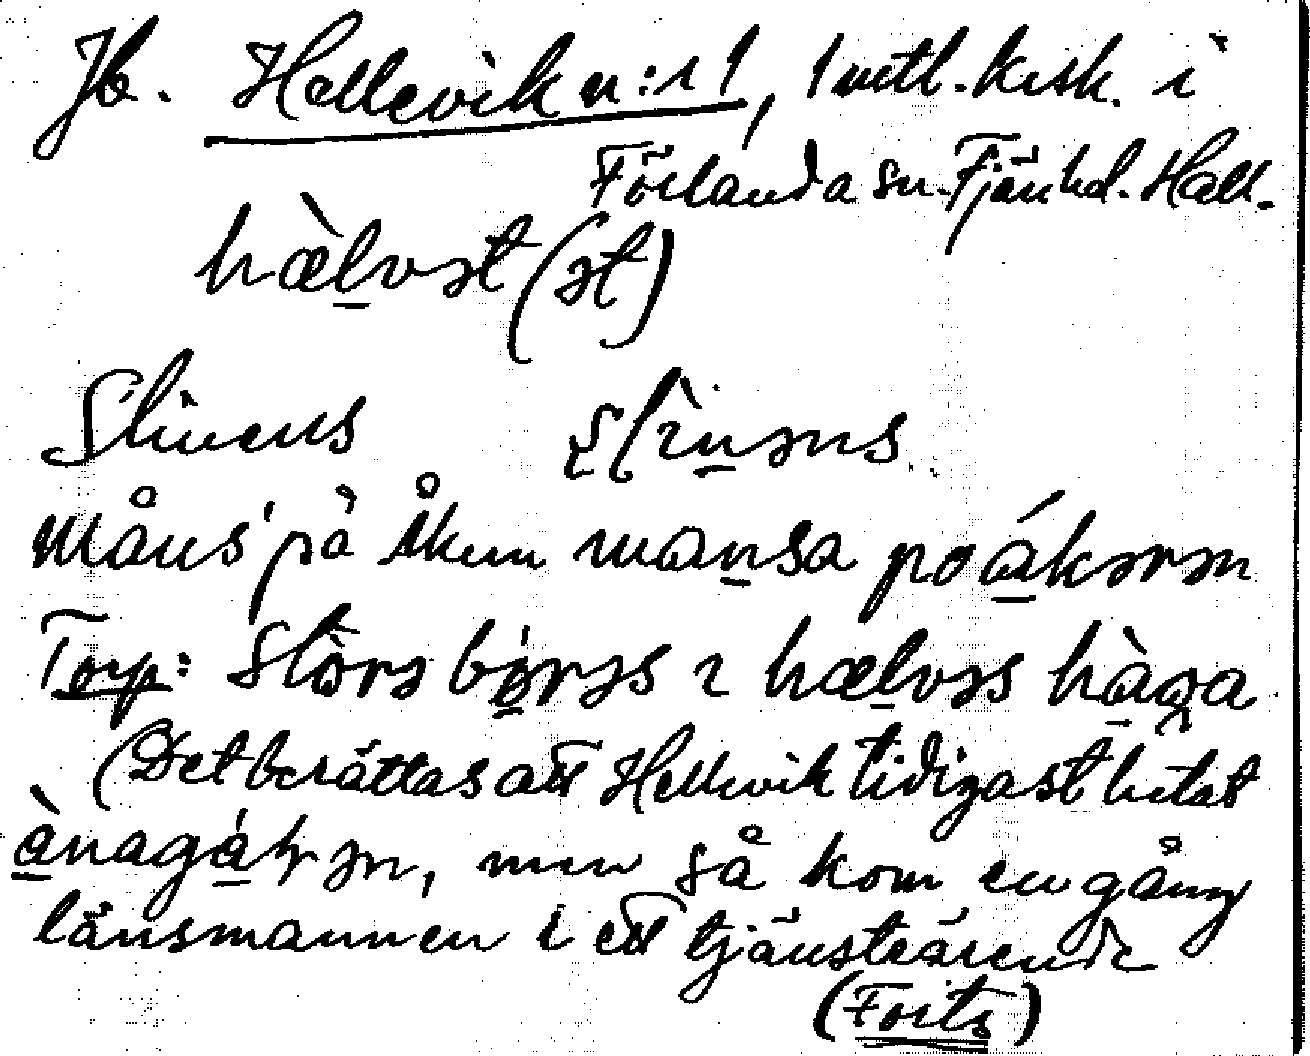 Jb. Hellevik n:r 1, 1 mtl. krsk. i
Förlanda sn. Fjäre hd. Hall.
hæ̀lvət (ət)
Slinens slìnəns
Måns' på Åkern mansa po ákərən
Torp: Störs börjəs ɩ hælvəs hàga
(Det berättas att Hellevik tidigast hetat
ànagálən, men så kom en gång
länsmannen i ett tjänsteärende
(Forts)